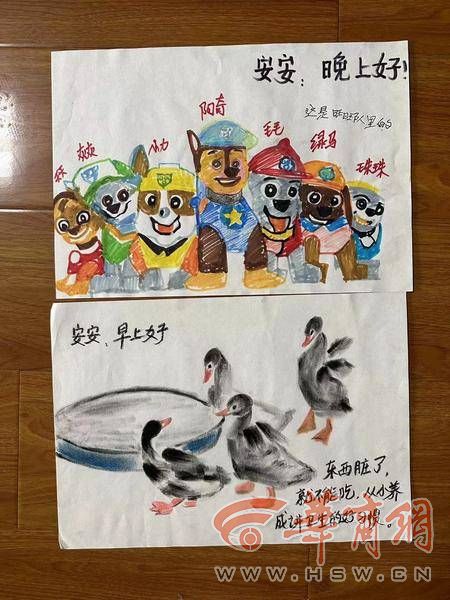 安安：晚上好!
这是旺旺队里的
阿奇
小力
毛毛
绿马
珠珠
安安、早上好
东西脏了，
就不能吃，从小养
成讲卫生的好习惯。
華商網
WWW.HSW.CN